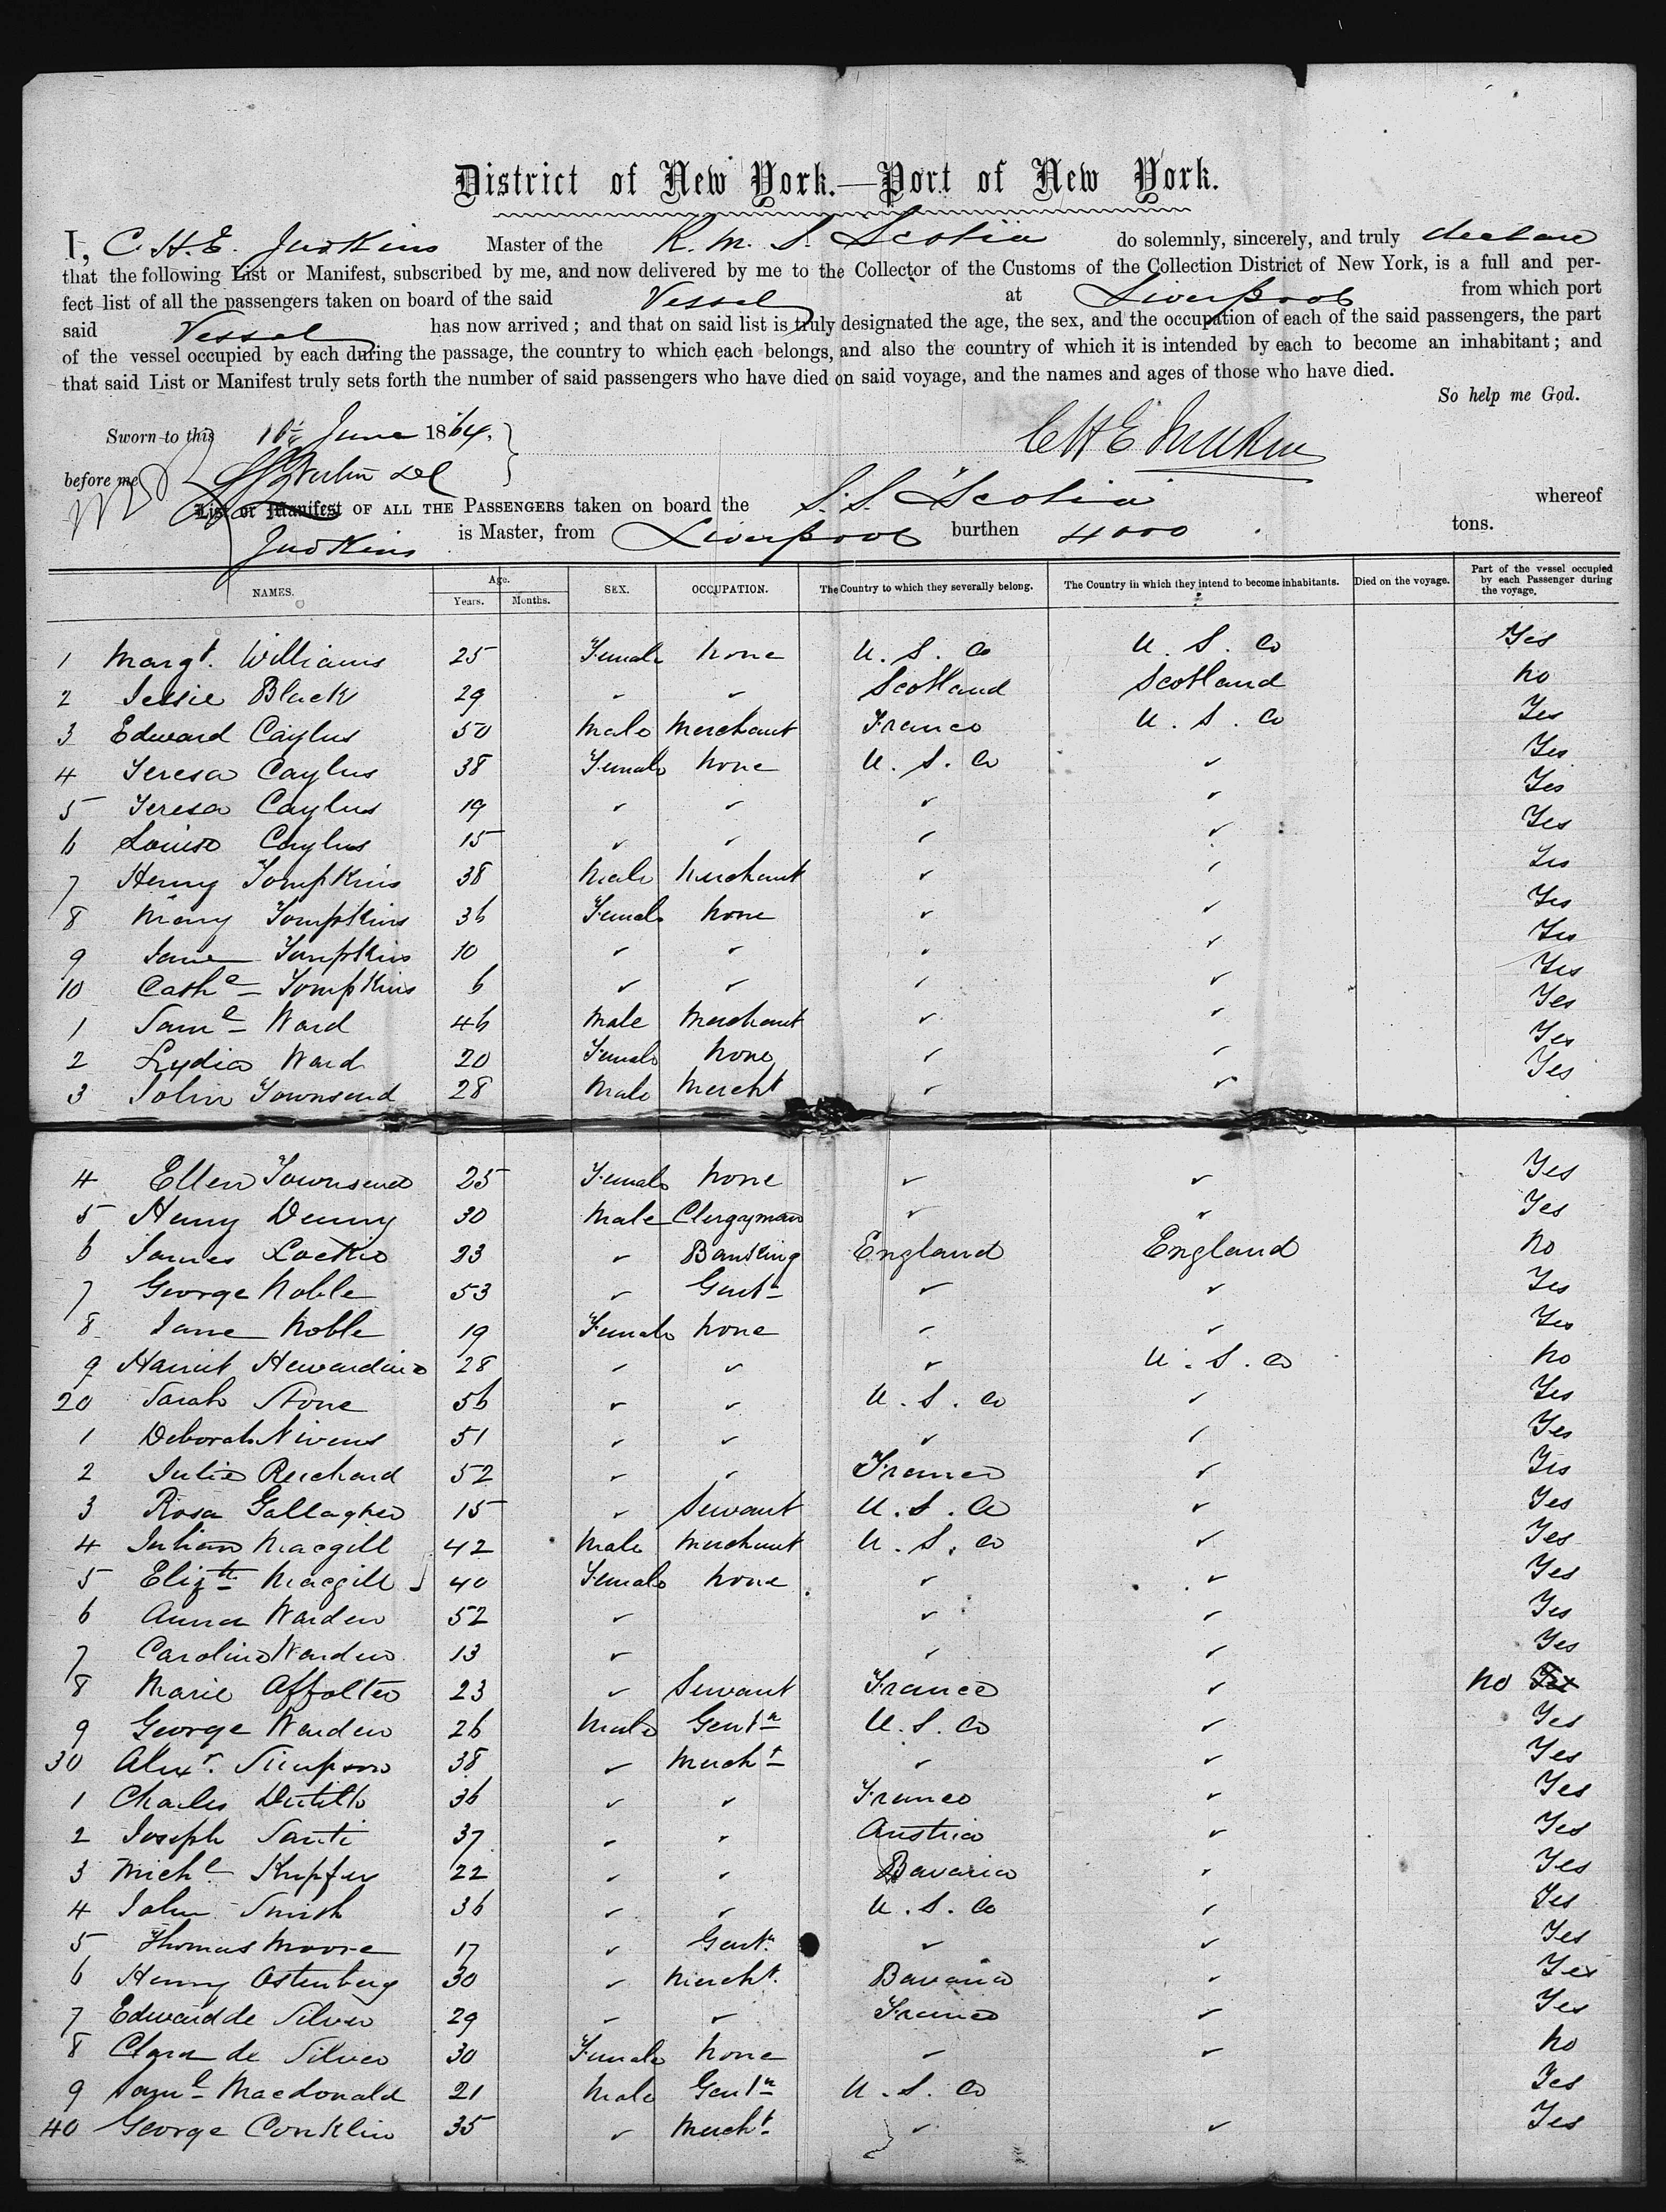 District of New York.—Port of New York.
I, C. H. E. Judkins Master of the R. M. S. Scotia do solemnly, sincerely, and truly declare
that the following List or Manifest, subscribed by me, and now delivered by me to the Collector of the Customs of the Collection District of New York, is a full and per-
fect list of all the passengers taken on board of the said Vessel at Liverpool from which port
said Vessel has now arrived; and that on said list is truly designated the age, the sex, and the occupation of each of the said passengers, the part
of the vessel occupied by each during the passage, the country to which each belongs, and also the country of which it is intended by each to become an inhabitant; and
that said List or Manifest truly sets forth the number of said passengers who have died on said voyage, and the names and ages of those who have died.
So help me God.
Sworn to this June 1864,
C H E Judkins
before me
List or Manifest OF ALL THE PASSENGERS taken on board the S. S. "Scotia" whereof
Judkins is Master, from Liverpool burthen 4000 tons.
NAMES. Age. Years. Months. SEX. OCCUPATION. The Country to which they severally belong. The Country in which they intend to become inhabitants. Died on the voyage. Part of the vessel occupied by each Passenger during the voyage.
1 Margt. Williams 25 Female None U. S. Co U. S. Co Yes
2 Jessie Black 29 ✓ ✓ Scotland Scotland No
3 Edward Caylus 50 Male Merchant France U. S. Co Yes
4 Teresa Caylus 38 Female None U. S. Co ✓ Yes
5 Teresa Caylus 19 ✓ ✓ ✓ ✓ Yes
6 Louise Caylus 15 ✓ ✓ ✓ ✓ Yes
7 Henry Tompkins 38 Male Merchant ✓ ✓ Yes
8 Mary Tompkins 36 Female None ✓ ✓ Yes
9 Jane Tompkins 10 ✓ ✓ ✓ ✓ Yes
10 Cathe Tompkins 6 ✓ ✓ ✓ ✓ Yes
1 Saml Ward 46 Male Merchant ✓ ✓ Yes
2 Lydia Ward 20 Female None ✓ ✓ Yes
3 John Townsend 28 Male Mercht ✓ ✓ Yes
4 Ellen Townsend 25 Female None ✓ ✓ Yes
5 Henry Denny 30 Male Clergyman ✓ ✓ Yes
6 James 23 ✓ Banking England England No
7 George Noble 53 ✓ Gentn ✓ ✓ Yes
8 Jane Noble 19 Female None ✓ ✓ Yes
9 Harriet 28 ✓ ✓ ✓ U. S. Co No
20 Sarah Stone 56 ✓ ✓ U. S. Co ✓ Yes
1 Deborah Nivens 51 ✓ ✓ ✓ ✓ Yes
2 Julie Reichard 52 ✓ ✓ France ✓ Yes
3 Rosa Gallagher 15 ✓ Servant U. S. Co ✓ Yes
4 Julian Macgill 42 Male Merchant U. S. Co ✓ Yes
5 Elizth Macgill 40 Female None ✓ ✓ Yes
6 Anna Warden 52 ✓ ✓ ✓ Yes
7 Caroline Warden 13 ✓ ✓ ✓ Yes
8 Marie Affolter 23 ✓ Servant France ✓ No Yes
9 George Warden 26 Male Gentn U. S. Co ✓ Yes
30 Alexr. Simpson 38 ✓ Mercht ✓ ✓ Yes
1 Charles 36 ✓ ✓ France ✓ Yes
2 Joseph Santi 37 ✓ ✓ Austria ✓ Yes
3 Michl Kupfer 22 ✓ ✓ Bavaria ✓ Yes
4 John Smith 36 ✓ ✓ U. S. Co ✓ Yes
5 Thomas Moore 17 ✓ Gentn ✓ ✓ Yes
6 Henry Ostenberg 30 ✓ Mercht. Bavaria ✓ Yes
7 Edward de Silver 29 ✓ ✓ France ✓ Yes
8 Clara de Silver 30 Female None ✓ ✓ No
9 Saml Macdonald 21 Male Gentn U. S. Co Yes
40 George Conklin 35 ✓ Mercht ✓ ✓ Yes